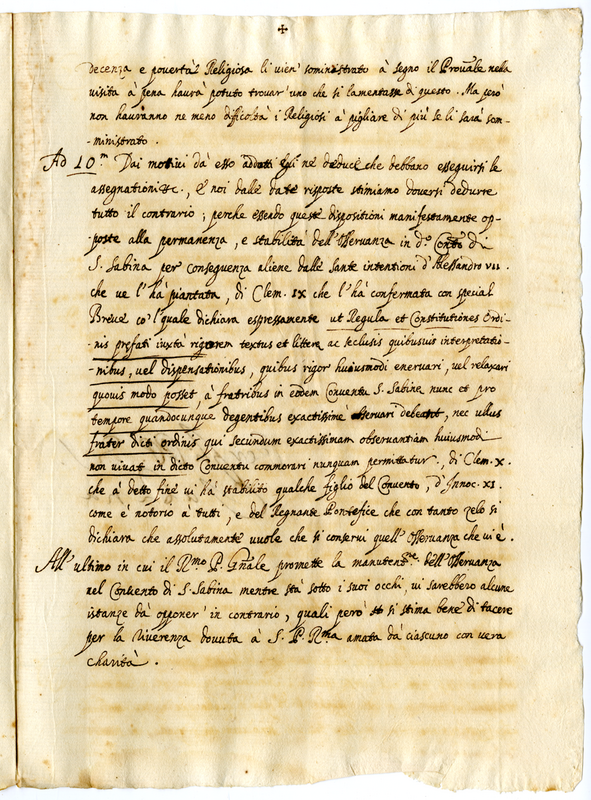 ✠
Decenza e povertà Religiosa li vien' somministrato à segno il Prou.ale nella
visita à pena haurà potuto trovar' uno che si lamentasse di questo. Ma però
non hauranno ne meno difficoltà i Religiosi à pigliare di più se li sarà som-
-ministrato.
Ad 10.m Dai motivi dà esso addotti egli ne deduce che debbano eseguirsi le
assegnationi &c., E noi dalle date risposte stimiamo doversi dedurre
tutto il contrario; perche essendo queste dispositioni manifestamente op-
-poste alla permanenza, e stabilità dell'Osservanza in d.o Conto di
S. Sabina per conseguenza aliene dalle sante intentioni d'Alessandro VII.
che ve l'hà piantata, di Clem. IX che l'hà confermata con special
Breve co'l quale dichiara espressamente ut Regula et Constitutiones Ordi-
nis prefati iuxta rigorem textus et littere ac seclusis quibusuis interpretatio-
-nibus, uel dispensationibus, quibus rigor huiusmodi eneruari, uel relaxari
quouis modo posset à fratribus in eodem Conventu S. Sabine nunc et pro
tempore quandocunque degentibus exactissime obseruari debeat, nec ullus
frater dicti ordinis qui secundum exactissimam obseruantiam huiusmodi
non vivat in dicto Conventu commorari nunquam permittatur, di Clem. X.
che à detto fine vi hà stabilito qualche figlio del Convento, d'Innoc. XI.
come è notorio à tutti, e del Regnante Pontefice che con tanto zelo si
dichiara che assolutamente vuole che si conservi quell'Osservanza che vi è.
All'ultimo in cui il R.mo P. Gñale promette la manuten.ne dell'Osservanza
nel Convento di S. Sabina mentre stà sotto i suoi occhi, vi sarebbero alcune
istanze dà opponer' in contrario, quali però si stima bene di tacere
per la riverenza dovuta à S. P. R.ma amata dà ciascuno con vera
charità.